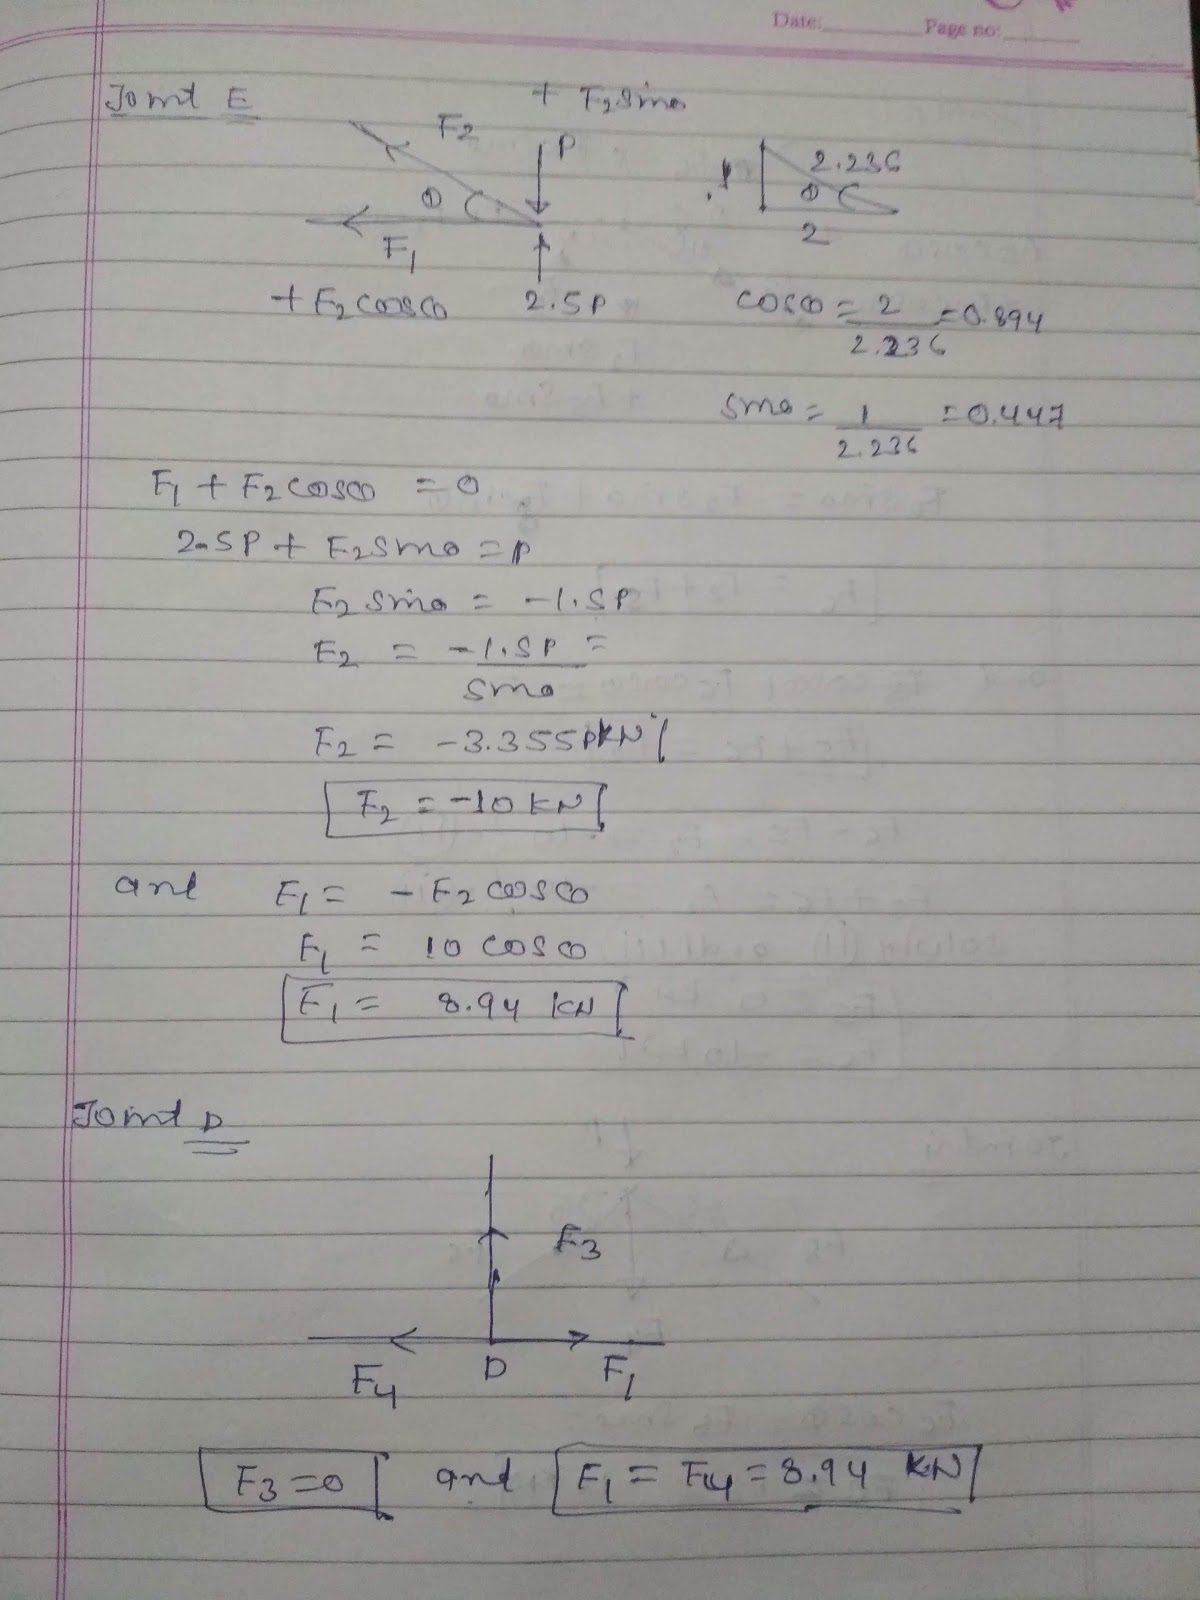 Date: Page no:
Joint E
+ F₂sinθ
F₂ P
2.236
θ θ
1
F₁ 2
+ F₂cosθ 2.5P cosθ = 2/2.236 = 0.894
sinθ = 1/2.236 = 0.447
F₁ + F₂cosθ = 0
2.5P + F₂sinθ = P
F₂sinθ = -1.5P
F₂ = -1.5P/sinθ =
F₂ = -3.355PKN
F₂ = -10KN
and F₁ = - F₂cosθ
F₁ = 10cosθ
F₁ = 8.94 KN
Joint D
F₃
F₄ D F₁
F₃=0 and F₁ = F₄ = 8.94 KN